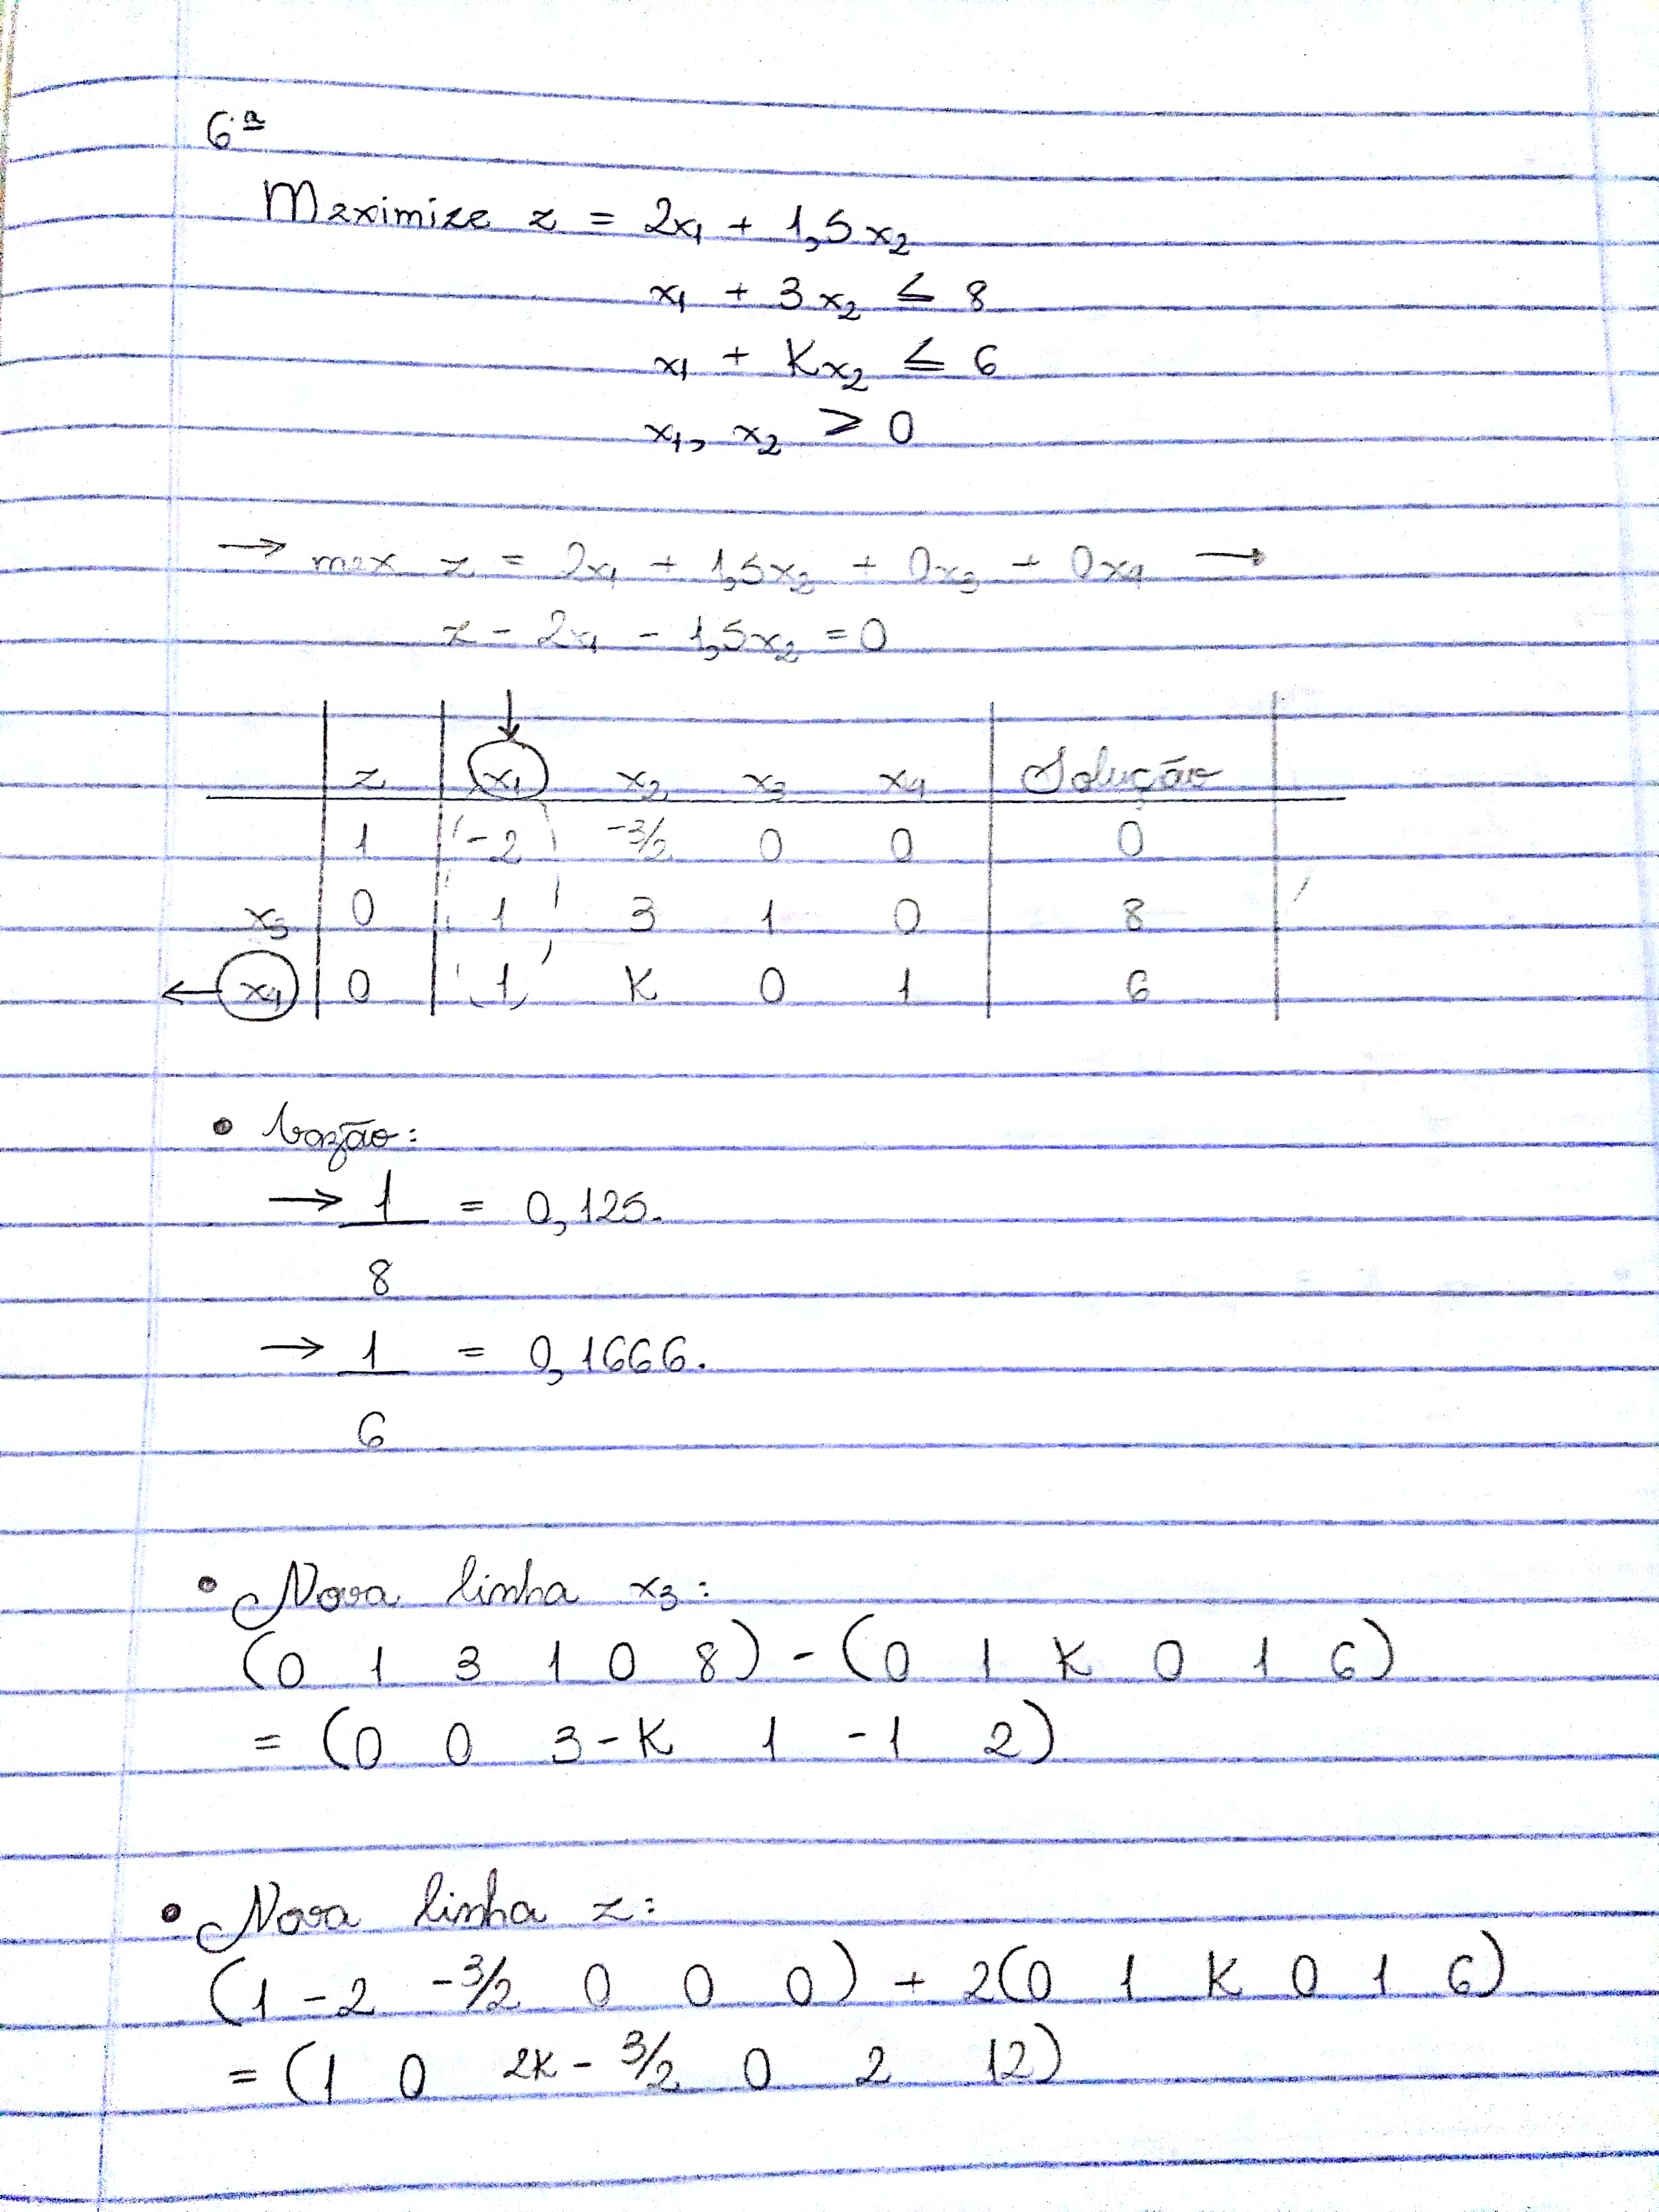 6ª
Maximize z = 2x₁ + 1,5x₂
x₁ + 3x₂ ≤ 8
x₁ + Kx₂ ≤ 6
x₁, x₂ ≥ 0
→ max z = 2x₁ + 1,5x₂ + 0x₃ + 0x₄ →
z - 2x₁ - 1,5x₂ = 0
↓
z x₁ x₂ x₃ x₄ Solução
1 -2 -3/2 0 0 0
x₃ 0 1 3 1 0 8
← x₄ 0 1 K 0 1 6
• razão:
→ 1/8 = 0,125.
→ 1/6 = 0,1666.
• Nova linha x₃:
(0 1 3 1 0 8) - (0 1 K 0 1 6)
= (0 0 3-K 1 -1 2)
• Nova linha z:
(1 -2 -3/2 0 0 0) + 2(0 1 K 0 1 6)
= (1 0 2K - 3/2 0 2 12)